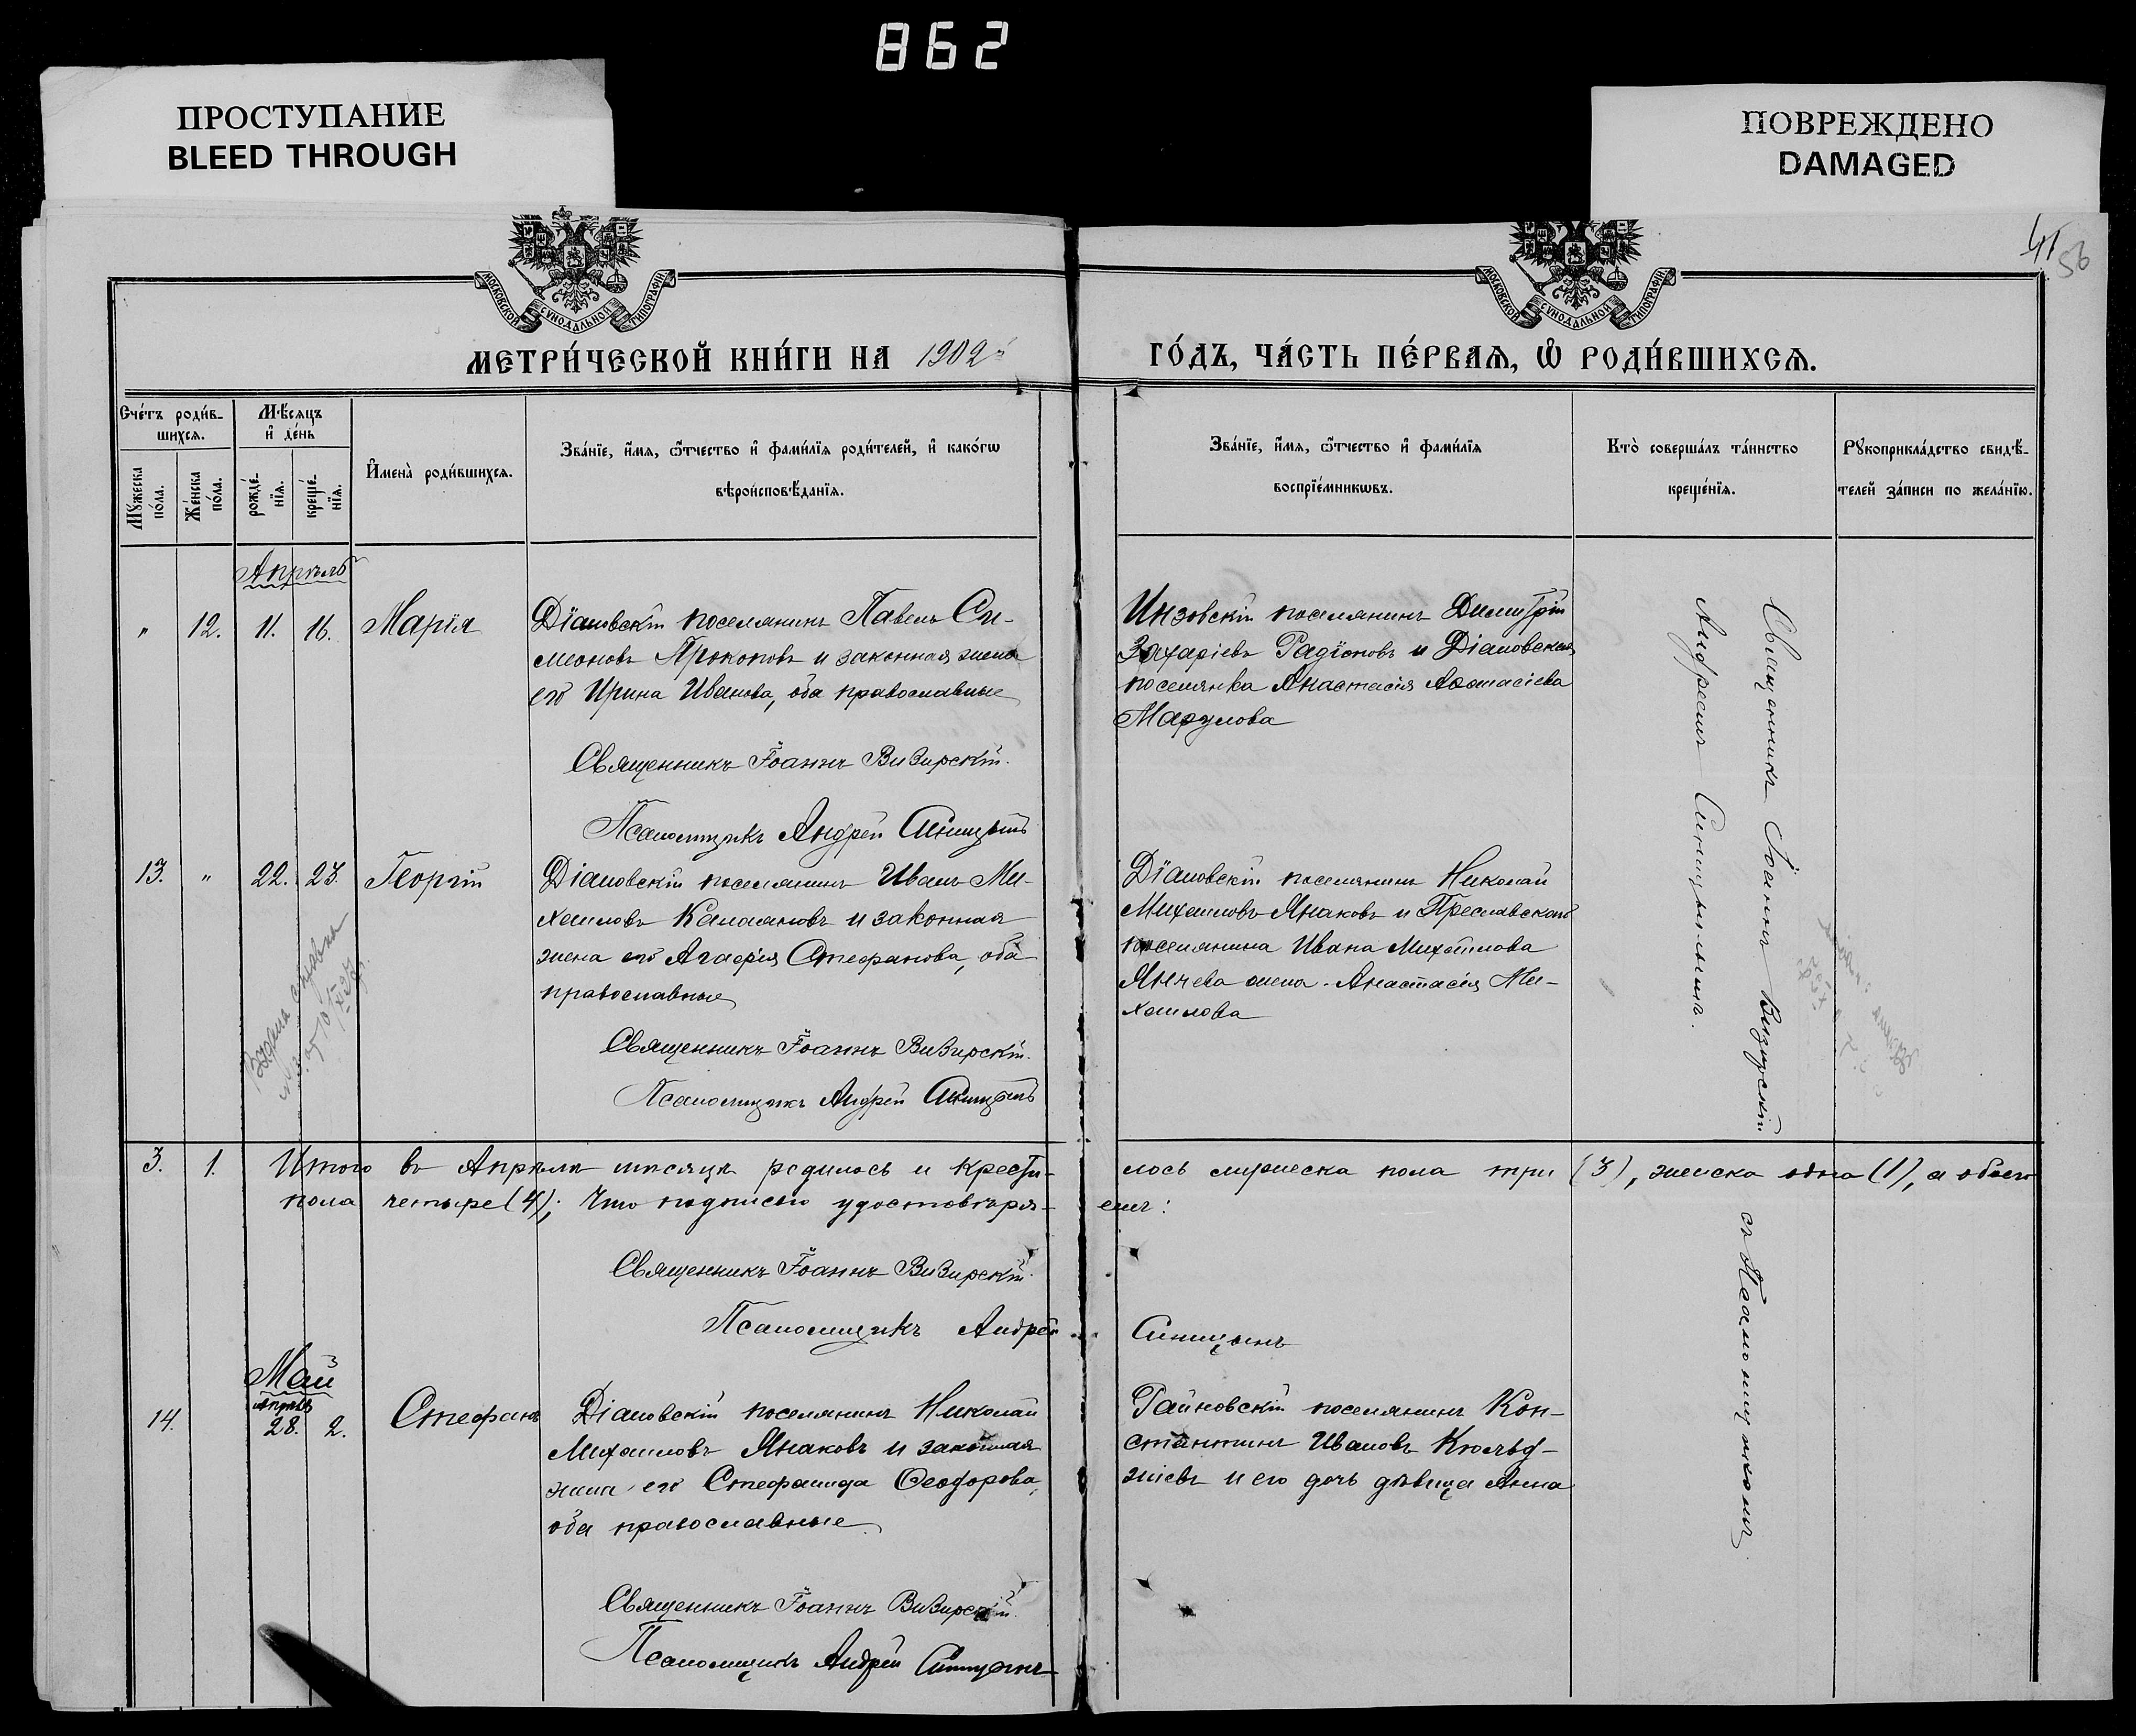 862
ПРОСТУПАНИЕ
BLEED THROUGH
ПОВРЕЖДЕНО
DAMAGED
МОСКОВСКОЙ СѴНОДАЛЬНОЙ ТИПОГРАФІИ
МОСКОВСКОЙ СѴНОДАЛЬНОЙ ТИПОГРАФІИ
41
56
МЕТРИ́ЧЕСКОЙ КНИ́ГИ НА 1902й
ГО́ДЪ, ЧА́СТЬ ПЕ́РВАѦ, Ѡ҆ РОДИ́ВШИХСѦ.
Сче́тъ роди́в-
шихсѧ.
Мѣ́сѧцъ
и҆ де́нь
Мꙋ́жеска
по́ла.
Же́нска
по́ла.
рожде́-
нїѧ.
креще́-
нїѧ.
И҆мена̀ роди́вшихсѧ.
Зва́нїе, и҆́мѧ, ѻ҆́тчество и҆ фами́лїѧ роди́телей, и҆ како́гѡ
вѣроисповѣ́данїѧ.
Зва́нїе, и҆́мѧ, ѻ҆́тчество и҆ фами́лїѧ
воспрїе́мникѡвъ.
Кто̀ соверша́лъ та́инство
креще́нїѧ.
Рꙋкоприкла́дство свидѣ́-
телей за́писи по жела́нїю.
Апрѣль
" 12. 11. 16. Марія
Діановскій поселянинъ Павелъ Си-
меоновъ Прокоповъ и законная жена
его Ирина Иванова, оба православные
Священникъ Іоаннъ Визирскій.
Псаломщикъ Андрей Синицынъ
Инзовскій поселянинъ Димитрій
Захаріевъ Радіоновъ и Діановская
поселянка Анастасія Аѳанасіева
Марулова
Священникъ Іоаннъ Визирскій
съ Псаломщикомъ
Андреемъ Синицынымъ.
13. " 22. 23. Георгій
Діановскій поселянинъ Иванъ Ми-
хаиловъ Калаяновъ и законная
жена его Агафія Стефанова, оба
православные
Священникъ Іоаннъ Визирскій.
Псаломщикъ Андрей Синицынъ
Діановскій поселянинъ Николай
Михаиловъ Янаковъ и Преславскаго
поселянина Ивана Михаилова
Янчева жена Анастасія Ми-
хаилова
3. 1. Итого въ Апрѣлѣ мѣсяцѣ родилось и крести-
лось мужеска пола три (3), женска одна (1), а обоего
пола четыре (4); Что подписью удостовѣря-
емъ:
Священникъ Іоаннъ Визирскій.
Псаломщикъ Андрей Синицынъ
Май
Апрѣля
14. 28. 2. Стефанъ
Діановскій поселянинъ Николай
Михаиловъ Янаковъ и законная
жена его Стефанида Ѳеодорова,
оба православные
Священникъ Іоаннъ Визирскій.
Псаломщикъ Андрей Синицынъ
Райновскій поселянинъ Кон-
стантинъ Ивановъ Кюльд-
жіевъ и его дочь дѣвица Анна